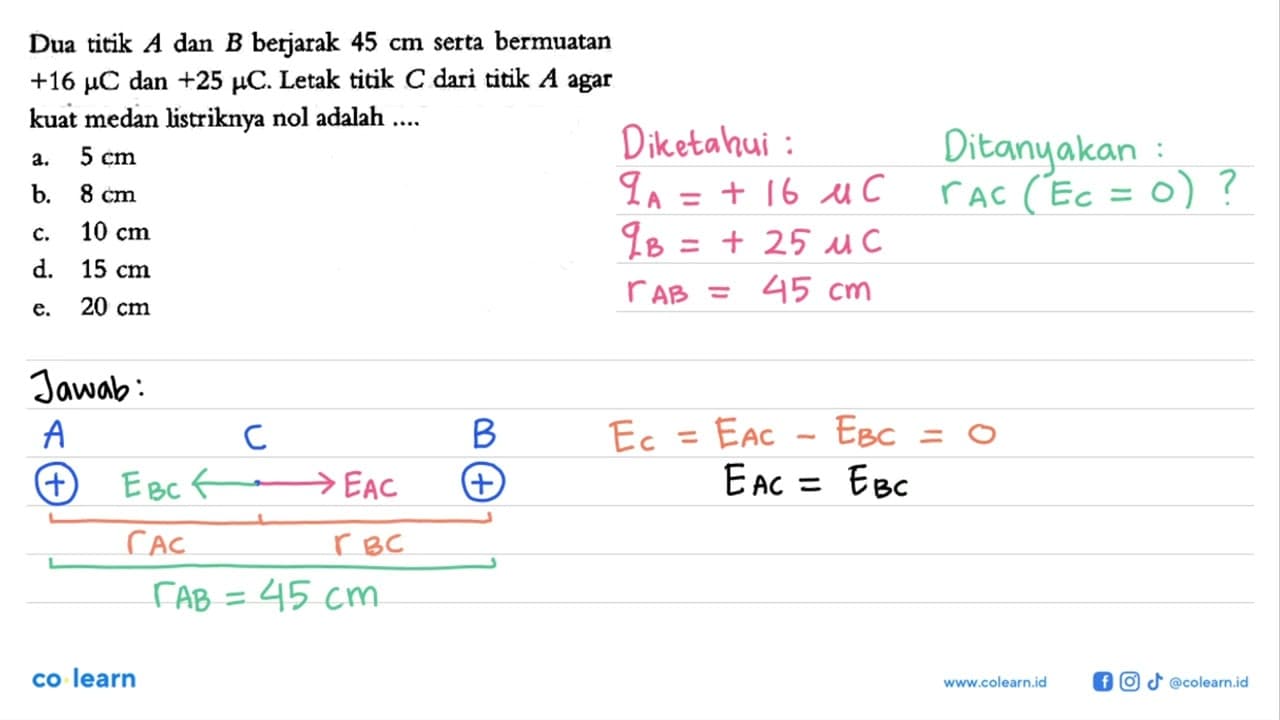 Dua titik A dan B berjarak 45 cm serta bermuatan
+16 μC dan +25 μC. Letak titik C dari titik A agar
kuat medan listriknya nol adalah ....
a. 5 cm
b. 8 cm
c. 10 cm
d. 15 cm
e. 20 cm
Diketahui :
qA = + 16 μC
qB = + 25 μC
rAB = 45 cm
Ditanyakan :
rAC (EC = 0) ?
Jawab:
A C B
+ EBC EAC +
rAC rBC
rAB = 45 cm
EC = EAC - EBC = 0
EAC = EBC
co learn
www.colearn.id @colearn.id